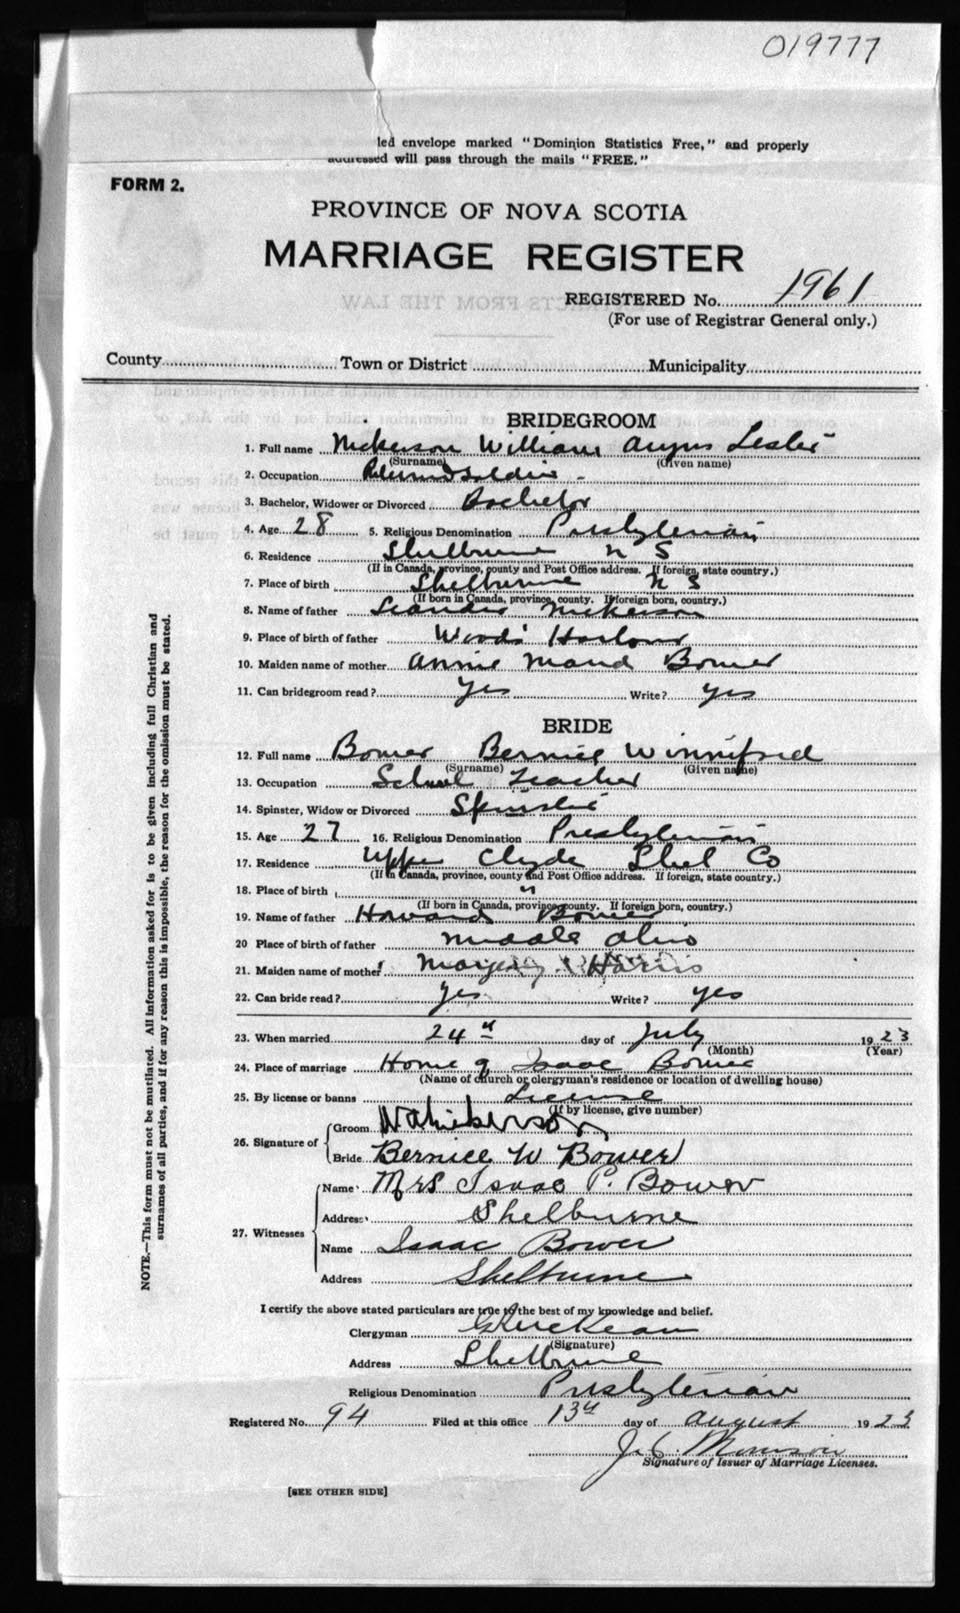 019777
led envelope marked "Dominion Statistics Free," and properly
addressed will pass through the mails "FREE."
FORM 2.
PROVINCE OF NOVA SCOTIA
MARRIAGE REGISTER
REGISTERED No. 1961
(For use of Registrar General only.)
County Town or District Municipality
BRIDEGROOM
1. Full name Nickerson William Angus Leslie
(Surname) (Given name)
2. Occupation Returned soldier
3. Bachelor, Widower or Divorced Bachelor
4. Age 28 5. Religious Denomination Presbyterian
6. Residence Shelburne N S
(If in Canada, province, county and Post Office address. If foreign, state country.)
7. Place of birth Shelburne N S
(If born in Canada, province, county. If foreign born, country.)
8. Name of father Leander Nickerson
9. Place of birth of father Woods Harbour
10. Maiden name of mother Annie Maud Bower
11. Can bridegroom read? Yes Write? Yes
BRIDE
12. Full name Bower Bernice Winnifred
(Surname) (Given name)
13. Occupation School Teacher
14. Spinster, Widow or Divorced Spinster
15. Age 27 16. Religious Denomination Presbyterian
17. Residence Upper Clyde Shel Co
(If in Canada, province, county and Post Office address. If foreign, state country.)
18. Place of birth "
(If born in Canada, province, county. If foreign born, country.)
19. Name of father Howard Bower
20 Place of birth of father Middle Ohio
21. Maiden name of mother Harris
22. Can bride read? Yes Write? Yes
23. When married 24th day of July 1923
(Month) (Year)
24. Place of marriage Home of Isaac Bower
(Name of church or clergyman's residence or location of dwelling house)
25. By license or banns License
(If by license, give number)
26. Signature of Groom W A Nickerson
Bride Bernice W Bower
27. Witnesses Name Mrs Isaac P. Bower
Address Shelburne
Name Isaac Bower
Address Shelburne
I certify the above stated particulars are true to the best of my knowledge and belief.
Clergyman
(Signature)
Address Shelburne
Religious Denomination Presbyterian
Registered No. 94 Filed at this office 13th day of August 1923
J. C. Morrison
Signature of Issuer of Marriage Licenses.
[SEE OTHER SIDE]
NOTE.—This form must not be mutilated. All information asked for is to be given including full Christian and
surnames of all parties, and if for any reason this is impossible, the reason for the omission must be stated.